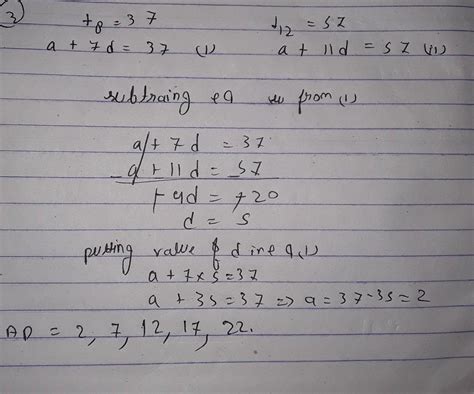 3
t8 = 37 t12 = 57
a + 7d = 37 (1) a + 11d = 57 (11)
subtraing eq from (1)
a + 7d = 37
- a + 11d = 57
+ 4d = + 20
d = 5
putting value of d in eq (1)
a + 7 x 5 = 37
a + 35 = 37 => a = 37 - 35 = 2
AP = 2, 7, 12, 17, 22.